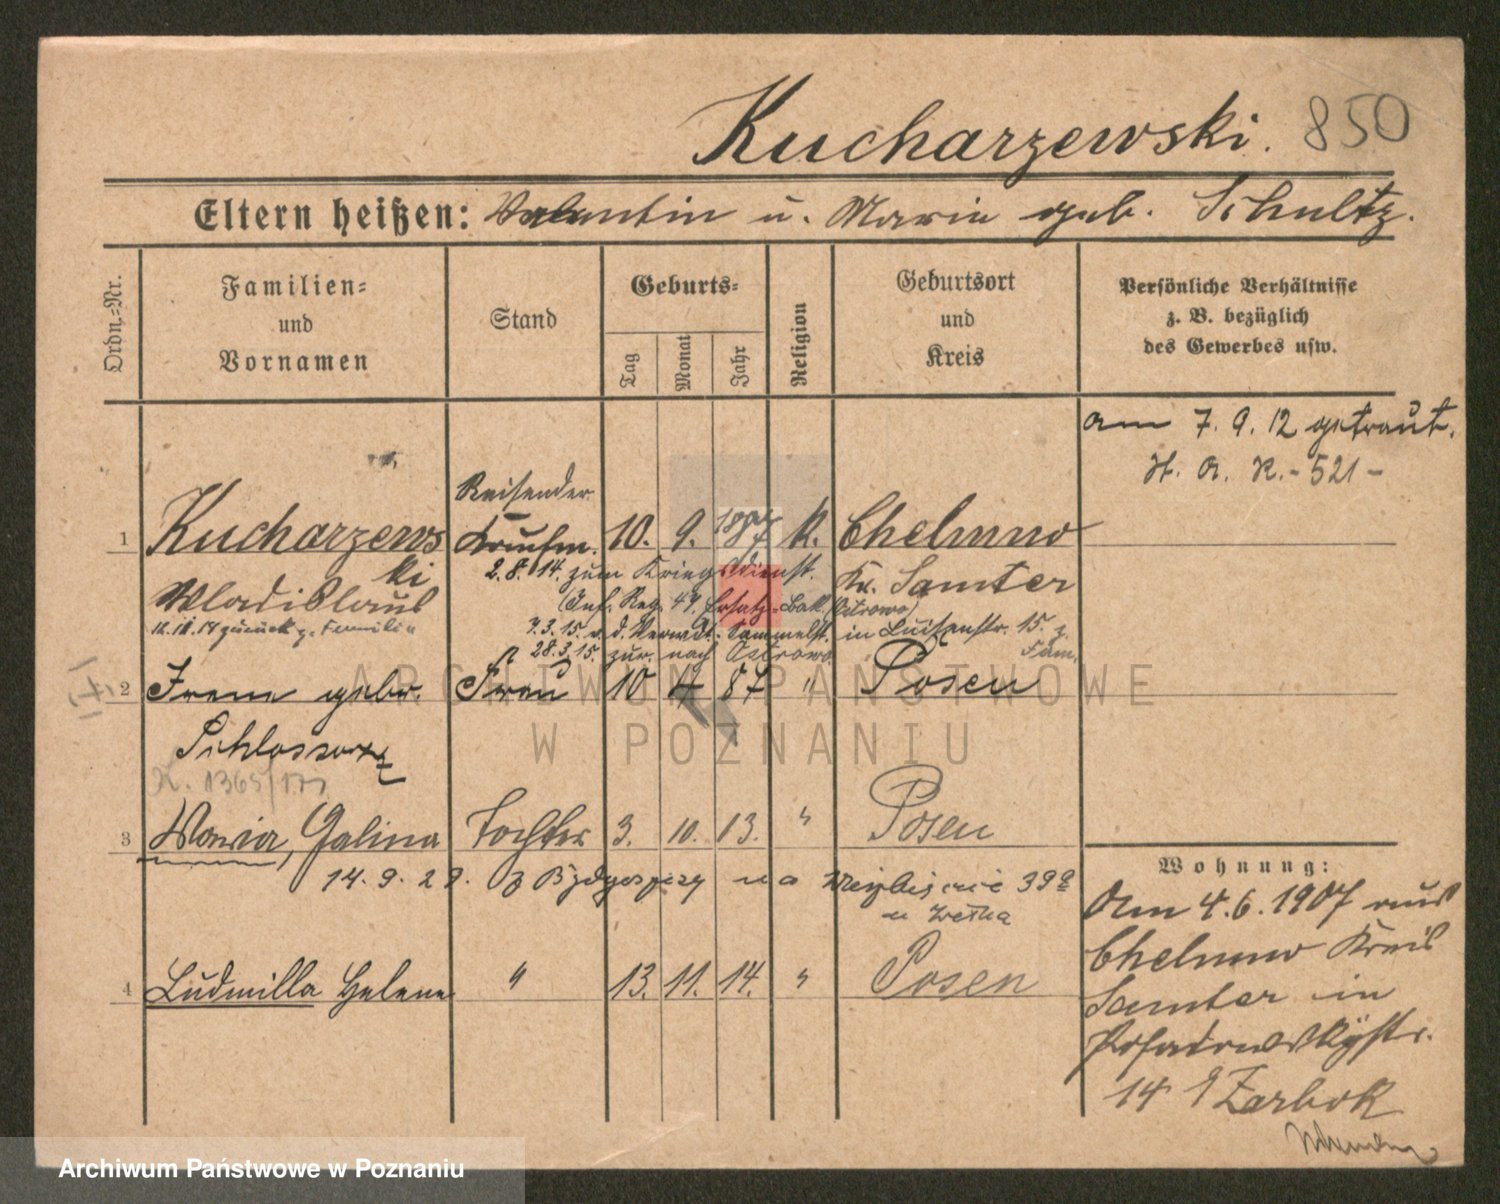 Kucharzewski. 850
Eltern heißen: Valentin u. Maria geb. Schultz.
Ordn.-Nr.
Familien-
und
Vornamen
Stand
Geburts-
Tag
Monat
Jahr
Religion
Geburtsort
und
Kreis
Persönliche Verhältnisse
z. B. bezüglich
des Gewerbes usw.
am 7. 9. 12 getraut.
H. A. R. - 521 -
Reisender
1 Kucharzews Kaufm. 10. 9. 1887 k. Chelmno
ki 2. 8. 14. zum Kriegsdienst. Kr. Samter
Wladislaus (Inf. Reg. 49. Ersatz-Bat. Ostrowo)
18 zurück z. Familie 7.3.15. v. d. Verwdt. Sammelst. in Luisenstr. 15. z.
28.3.15. zur. nach Ostrowo Fam.
2 Irene gebr. Frau 10 4 87 " Posen
ARCHIWUM PAŃSTWOWE
W POZNANIU
K. 1365/
3 Maria, Halina Tochter 3. 10. 13. " Posen
14. 9. 28. z Bydgoszczy na 39a
Wohnung:
Am 4. 6. 1907 aus
Chelmno Kreis
Samter in
Posadowskystr.
14 Zarbok
4 Ludmilla Helene " 13. 11. 14. " Posen
Archiwum Państwowe w Poznaniu